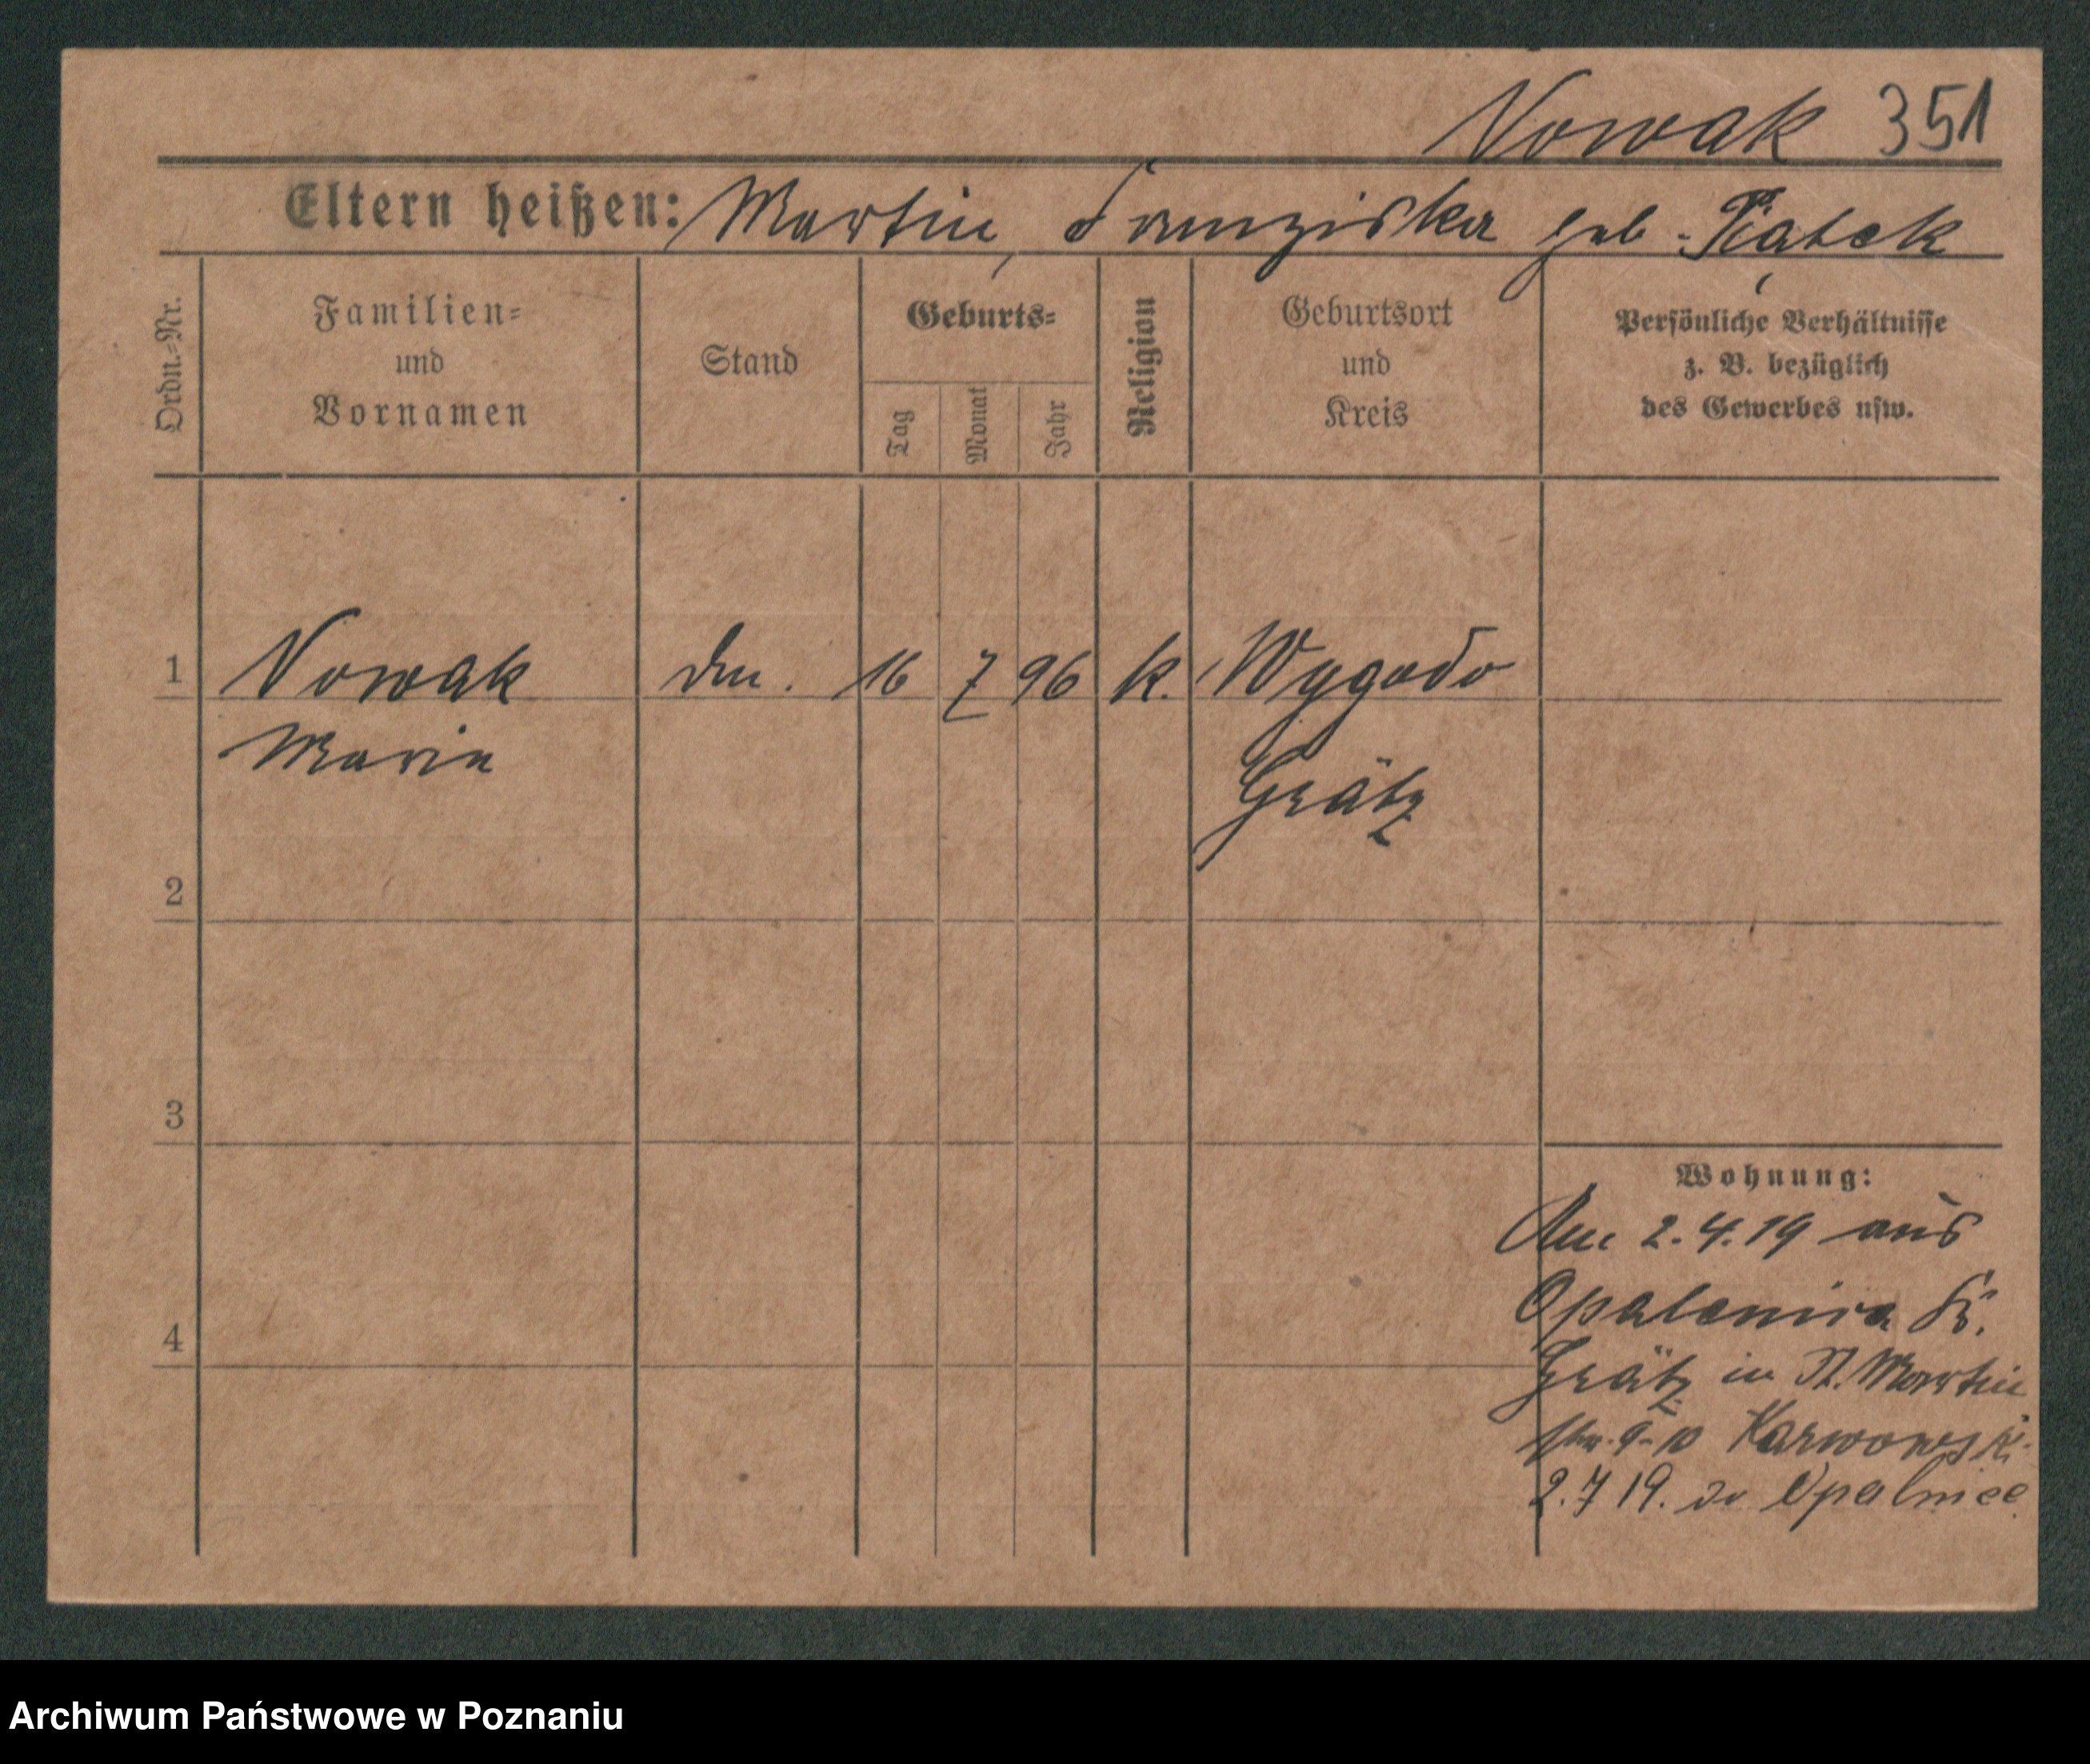 Nowak 351
Eltern heißen: Martin, Franziska geb. Piątek
Ordn.-Nr.
Familien-
und
Vornamen
Stand
Geburts-
Tag
Monat
Jahr
Religion
Geburtsort
und
Kreis
Persönliche Verhältnisse
z. B. bezüglich
des Gewerbes usw.
1 Nowak 16 7 96 k. Wygodo
Maria Grätz
2
3
4
Wohnung:
2.4.19 aus
Opalenica Kr.
Grätz in St. Martin
9-10 Karwowski
2.7 19. do Opalnice
Archiwum Państwowe w Poznaniu